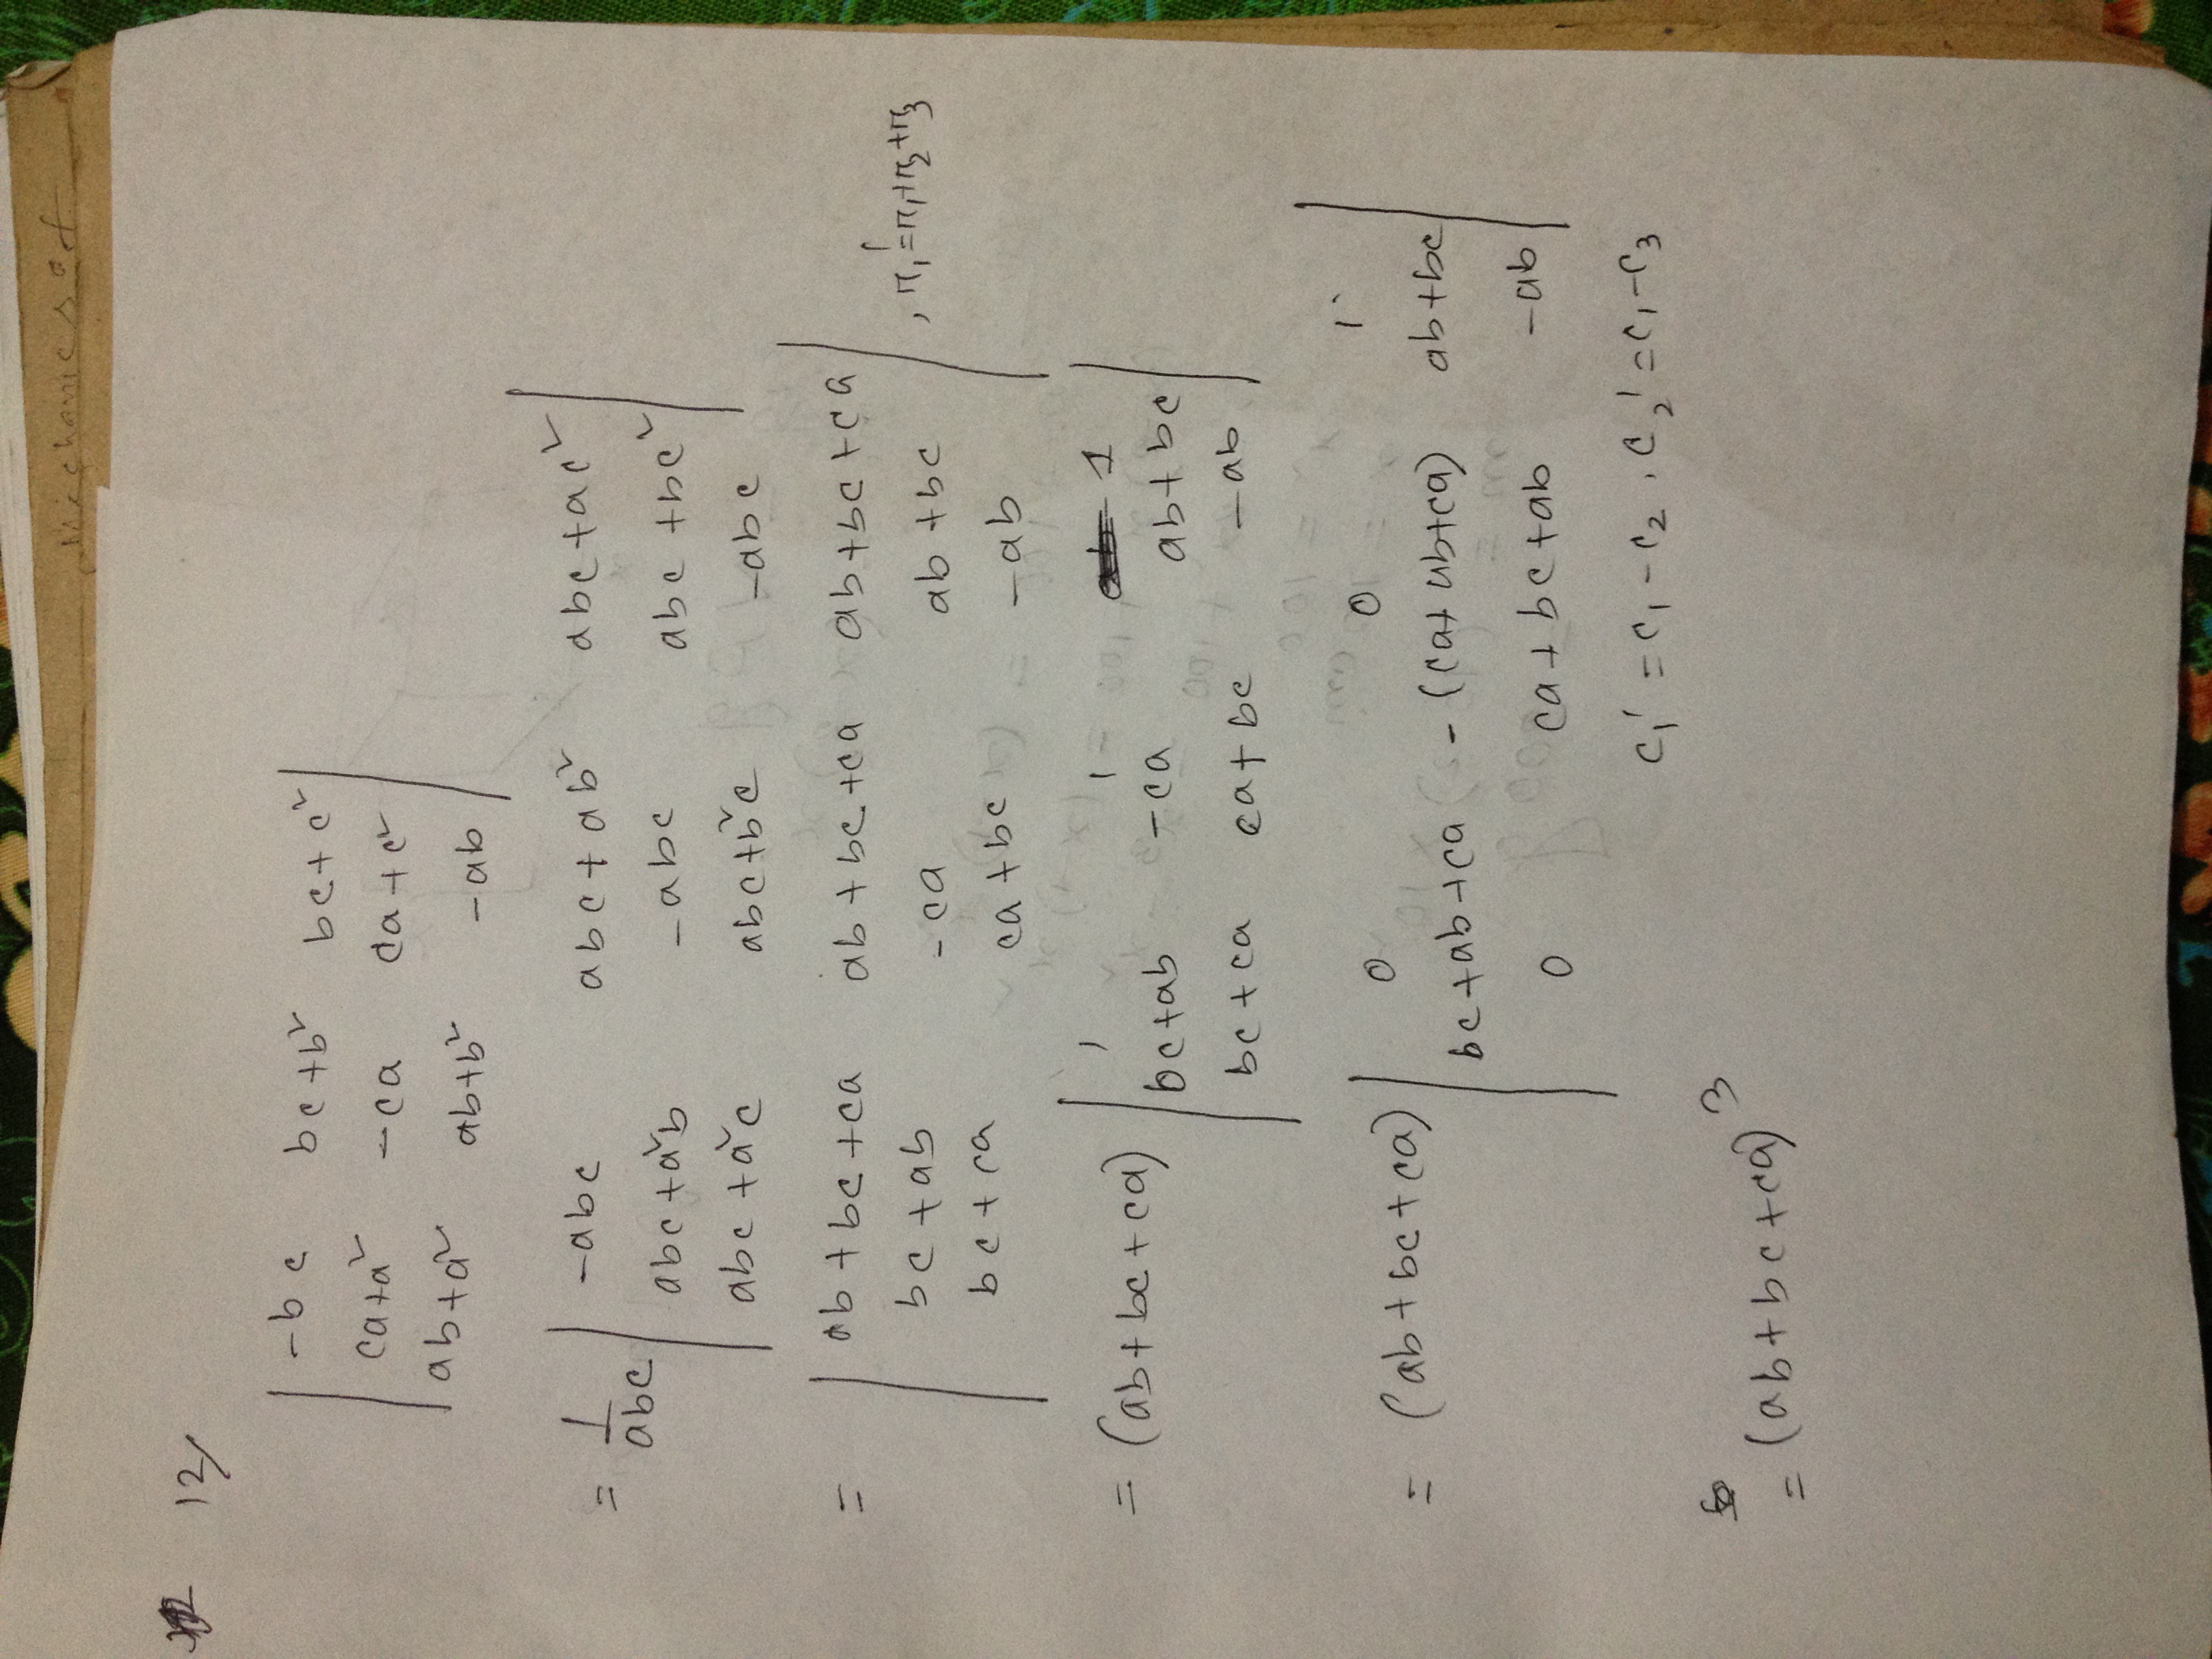 Mechanics of
12/
| -bc bc+b² bc+c² |
| ca+a² -ca ca+c² |
| ab+a² ab+b² -ab |
= 1/abc | -abc abc+ab² abc+ac² |
| abc+a²b -abc abc+bc² |
| abc+a²c abc+b²c -abc |
= | ab+bc+ca ab+bc+ca ab+bc+ca |
| bc+ab -ca ab+bc | , r₁'=r₁+r₂+r₃
| bc+ca ca+bc -ab |
= (ab+bc+ca) | 1 1 1 |
| bc+ab -ca ab+bc |
| bc+ca ca+bc -ab |
= (ab+bc+ca) | 0 0 1 |
| bc+ab+ca -(ca+ab+ca) ab+bc |
| 0 ca+bc+ab -ab |
c₁' = c₁-c₂ , c₂' = c₁-c₃
= (ab+bc+ca)³